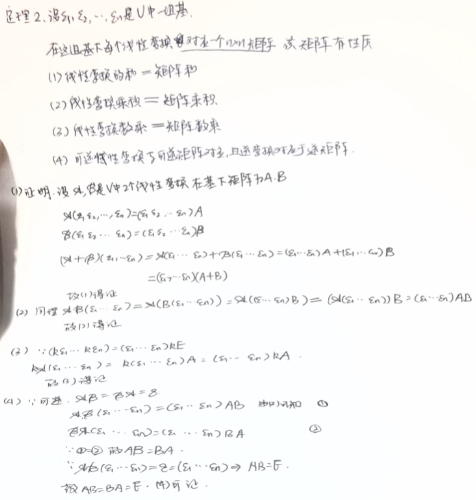 定理2. 设ε₁,ε₂,…,εₙ是V中一组基.
在这组基下每个线性变换对应一个n×n矩阵 该矩阵有性质
(1) 线性变换的和 = 矩阵和
(2) 线性变换乘积 = 矩阵乘积
(3) 线性变换数乘 = 矩阵数乘
(4) 可逆线性变换与可逆矩阵对应,且逆变换对应于逆矩阵.
(1) 证明. 设𝒜,ℬ是V中2个线性变换 在基下矩阵为A.B
𝒜(ε₁ε₂,…,εₙ)=(ε₁ε₂…εₙ)A
ℬ(ε₁ε₂…εₙ)=(ε₁ε₂…εₙ)B
(𝒜+ℬ)(ε₁…εₙ)=𝒜(ε₁…εₙ)+ℬ(ε₁…εₙ)=(ε₁…εₙ)A+(ε₁…εₙ)B
=(ε₁…εₙ)(A+B)
故(1)得证
(2) 同理 𝒜ℬ(ε₁…εₙ)=𝒜(ℬ(ε₁…εₙ))=𝒜((ε₁…εₙ)B)=(𝒜(ε₁…εₙ))B=(ε₁…εₙ)AB
故(2)得证
(3) ∵(kε₁…kεₙ)=(ε₁…εₙ)kE
k𝒜(ε₁…εₙ)=k(ε₁…εₙ)A=(ε₁…εₙ)kA.
故(3)得证
(4) ∵可逆. 𝒜ℬ=ℬ𝒜=ℰ
𝒜ℬ(ε₁…εₙ)=(ε₁…εₙ)AB 由(2)可知 ①
ℬ𝒜(ε₁…εₙ)=(ε₁…εₙ)BA ②
∵①=② 故AB=BA.
∵𝒜ℬ(ε₁…εₙ)=ℰ=(ε₁…εₙ)⇒AB=E.
故AB=BA=E. (4)可证.